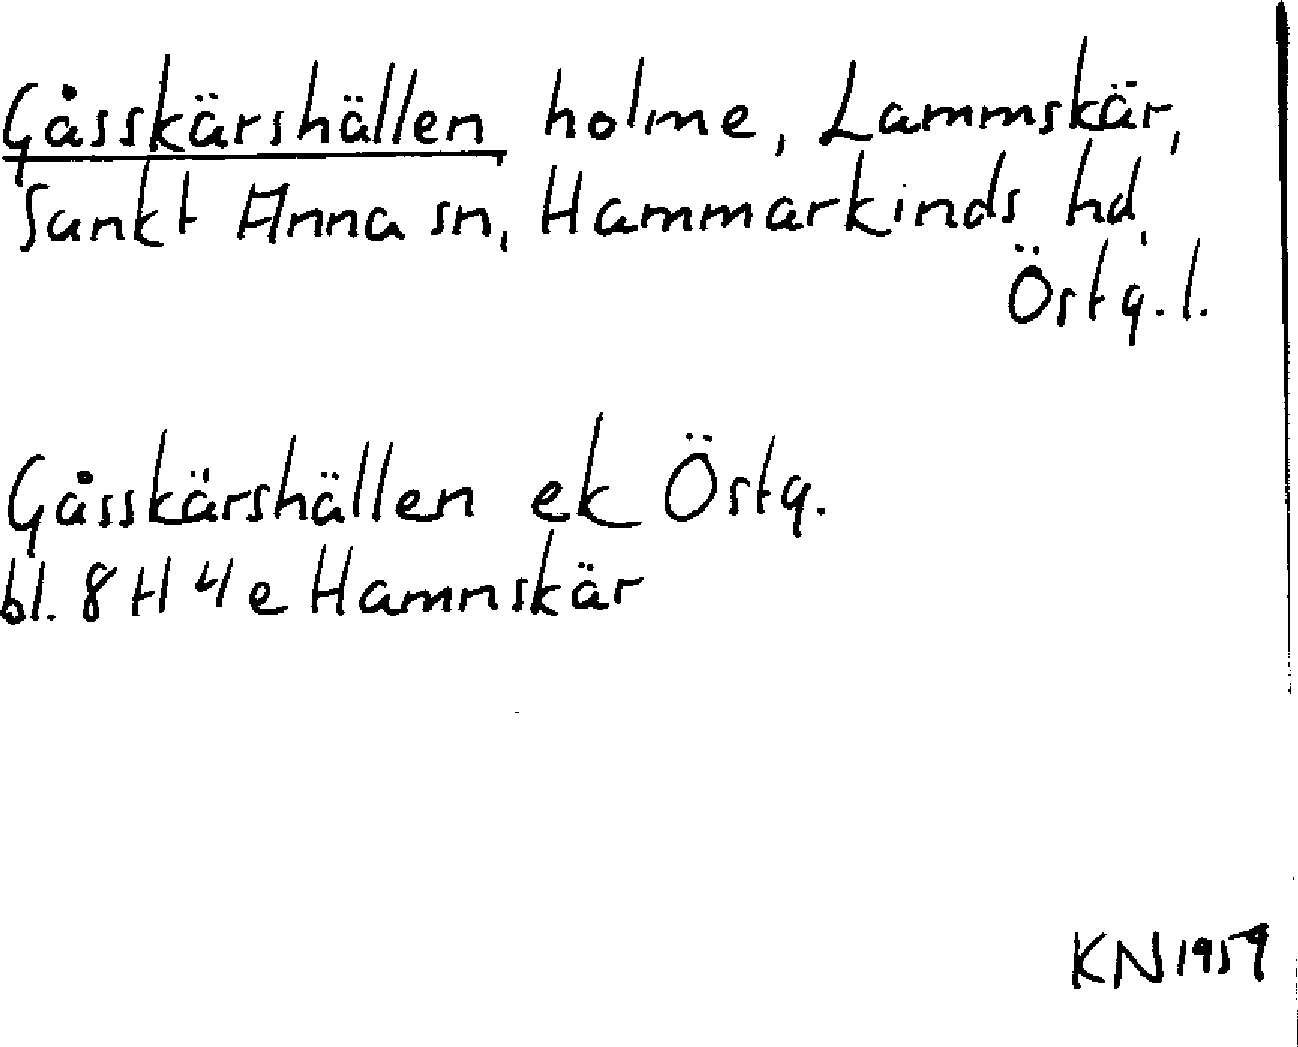 Gåsskärshällen, holme, Lammskär,
Sankt Anna sn, Hammarkinds hd,
Östg. l.
Gåsskärshällen ek Östg.
bl. 8H 4e Hamnskär
KN 1959